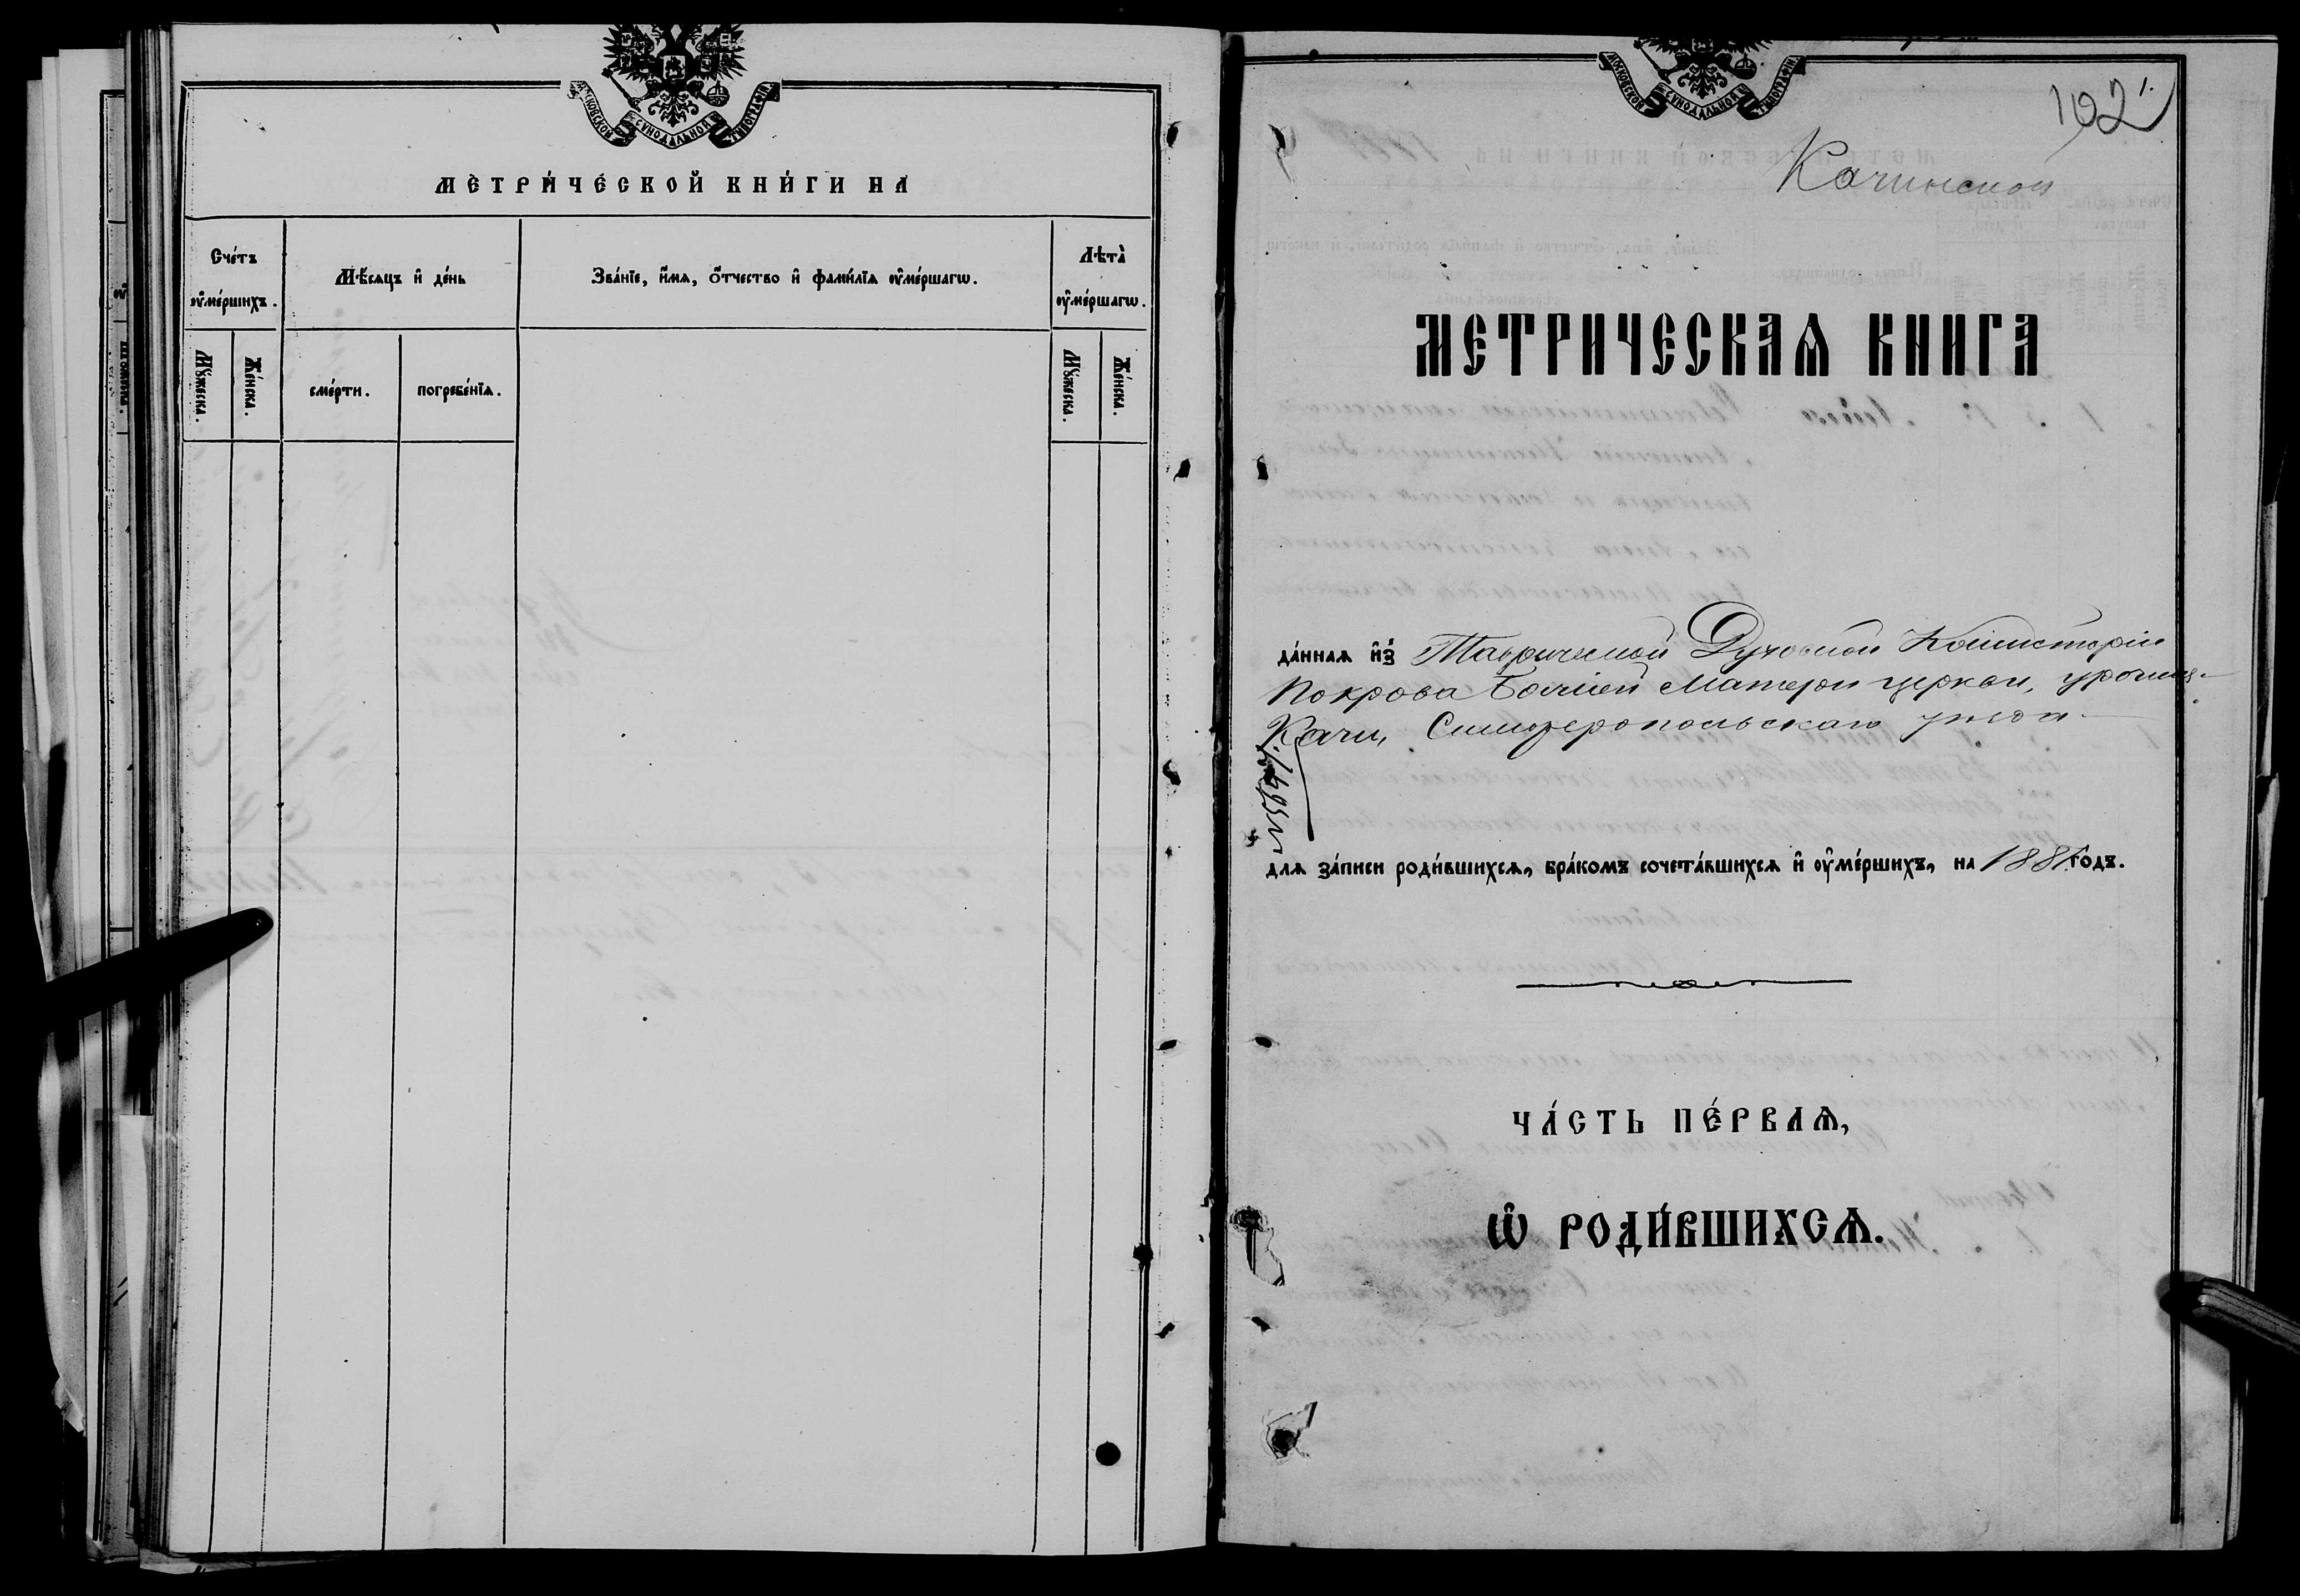 МОСКОВСКОЙ СѴНОДАЛЬНОЙ ТИПОГРАФІИ
МЕТРИ́ЧЕСКОЙ КНИ́ГИ НА
Сче́тъ ᲂу҆ме́ршихъ.
Мѣ́сяцъ и҆ де́нь
Зва́нїе, и҆́мѧ, ѻ҆́тчество и҆ фами́лїѧ ᲂу҆ме́ршагѡ.
Лѣта̀ ᲂу҆ме́ршагѡ.
Мꙋ́жеска.
Же́нска.
сме́рти.
погребе́нїѧ.
Мꙋ́жеска.
Же́нска.
МОСКОВСКОЙ СѴНОДАЛЬНОЙ ТИПОГРАФІИ
102
Качинской
МЕТРИЧЕСКАѦ КНИГА
да́ннаѧ и҆з̾ Таврической Духовной Консисторіи
Покрова Божіей Матери церкви,
Качи, Симферопольскаго уѣзда
длѧ за́писи роди́вшихсѧ, бра́комъ сочета́вшихсѧ и҆ ᲂу҆ме́ршихъ, на 1881 го́дъ.
ЧА́СТЬ ПЕ́РВАѦ,
Ѡ҆ РОДИ́ВШИХСѦ.